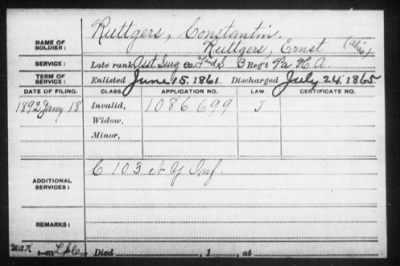 NAME OF SOLDIER: Ruttgers, Constantin.
Ruttgers, Ernst (alias)
SERVICE: Late rank Asst Surg Co. F & S 3 Reg't Pa H A.
TERM OF SERVICE: Enlisted June 15, 1861 Discharged July 24, 1865
DATE OF FILING. CLASS. APPLICATION NO. LAW. CERTIFICATE NO.
1892 Jany 18 Invalid, 1086,699 J
Widow,
Minor,
ADDITIONAL SERVICES: C 103 N Y Inf.
REMARKS:
Died , 1 , at